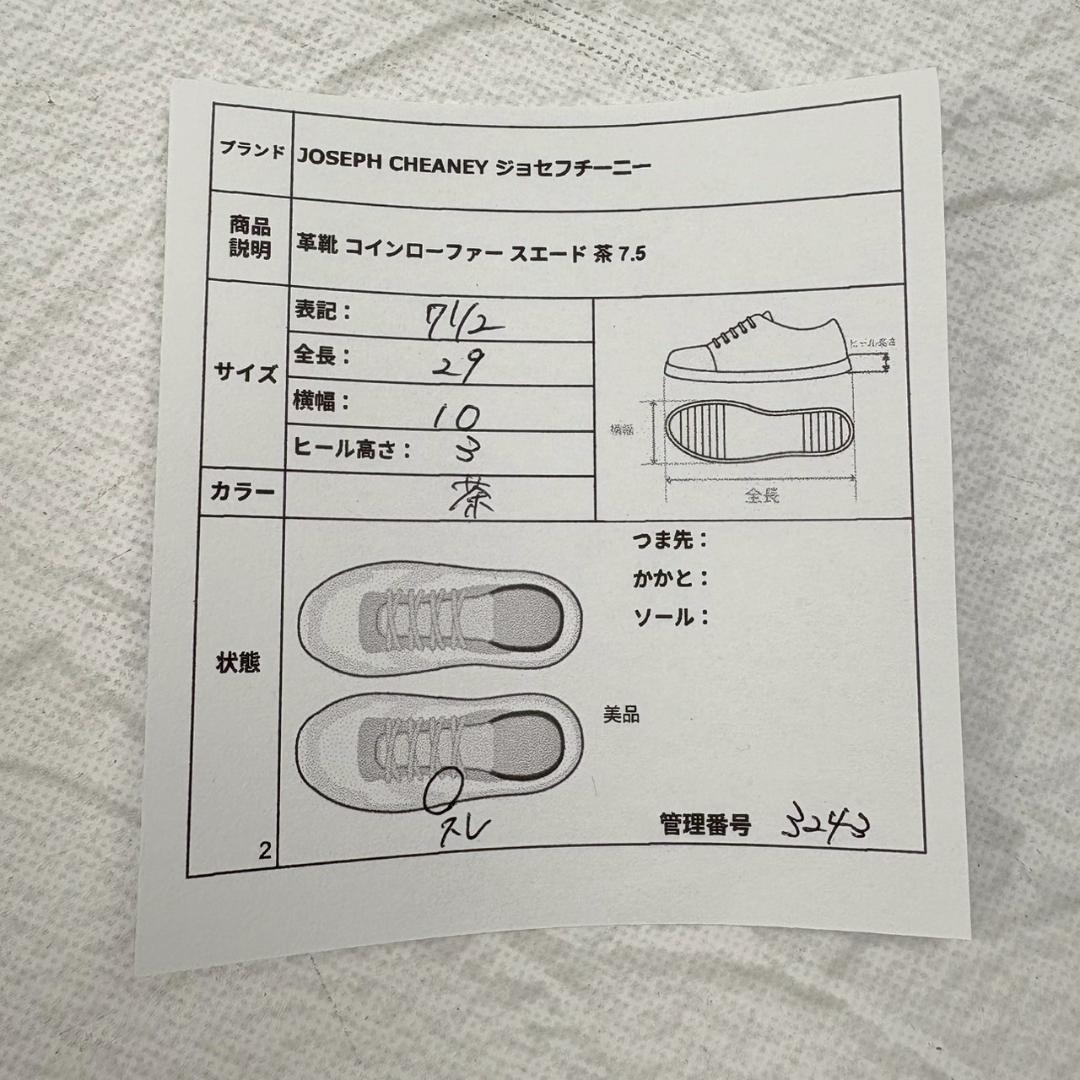 ブランド JOSEPH CHEANEY ジョセフチーニー
商品説明 革靴 コインローファー スエード 茶 7.5
サイズ
表記： 7 1/2
全長： 29
横幅： 10
ヒール高さ： 3
ヒール高さ
横幅
全長
カラー 茶
状態
つま先：
かかと：
ソール：
美品
スレ
管理番号 3243
2